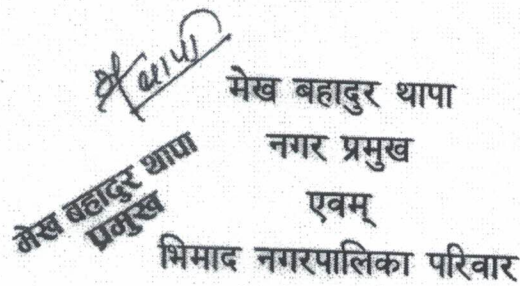 थापा
मेख बहादुर थापा
नगर प्रमुख
एवम्
भिमाद नगरपालिका परिवार
मेख बहादुर थापा
प्रमुख